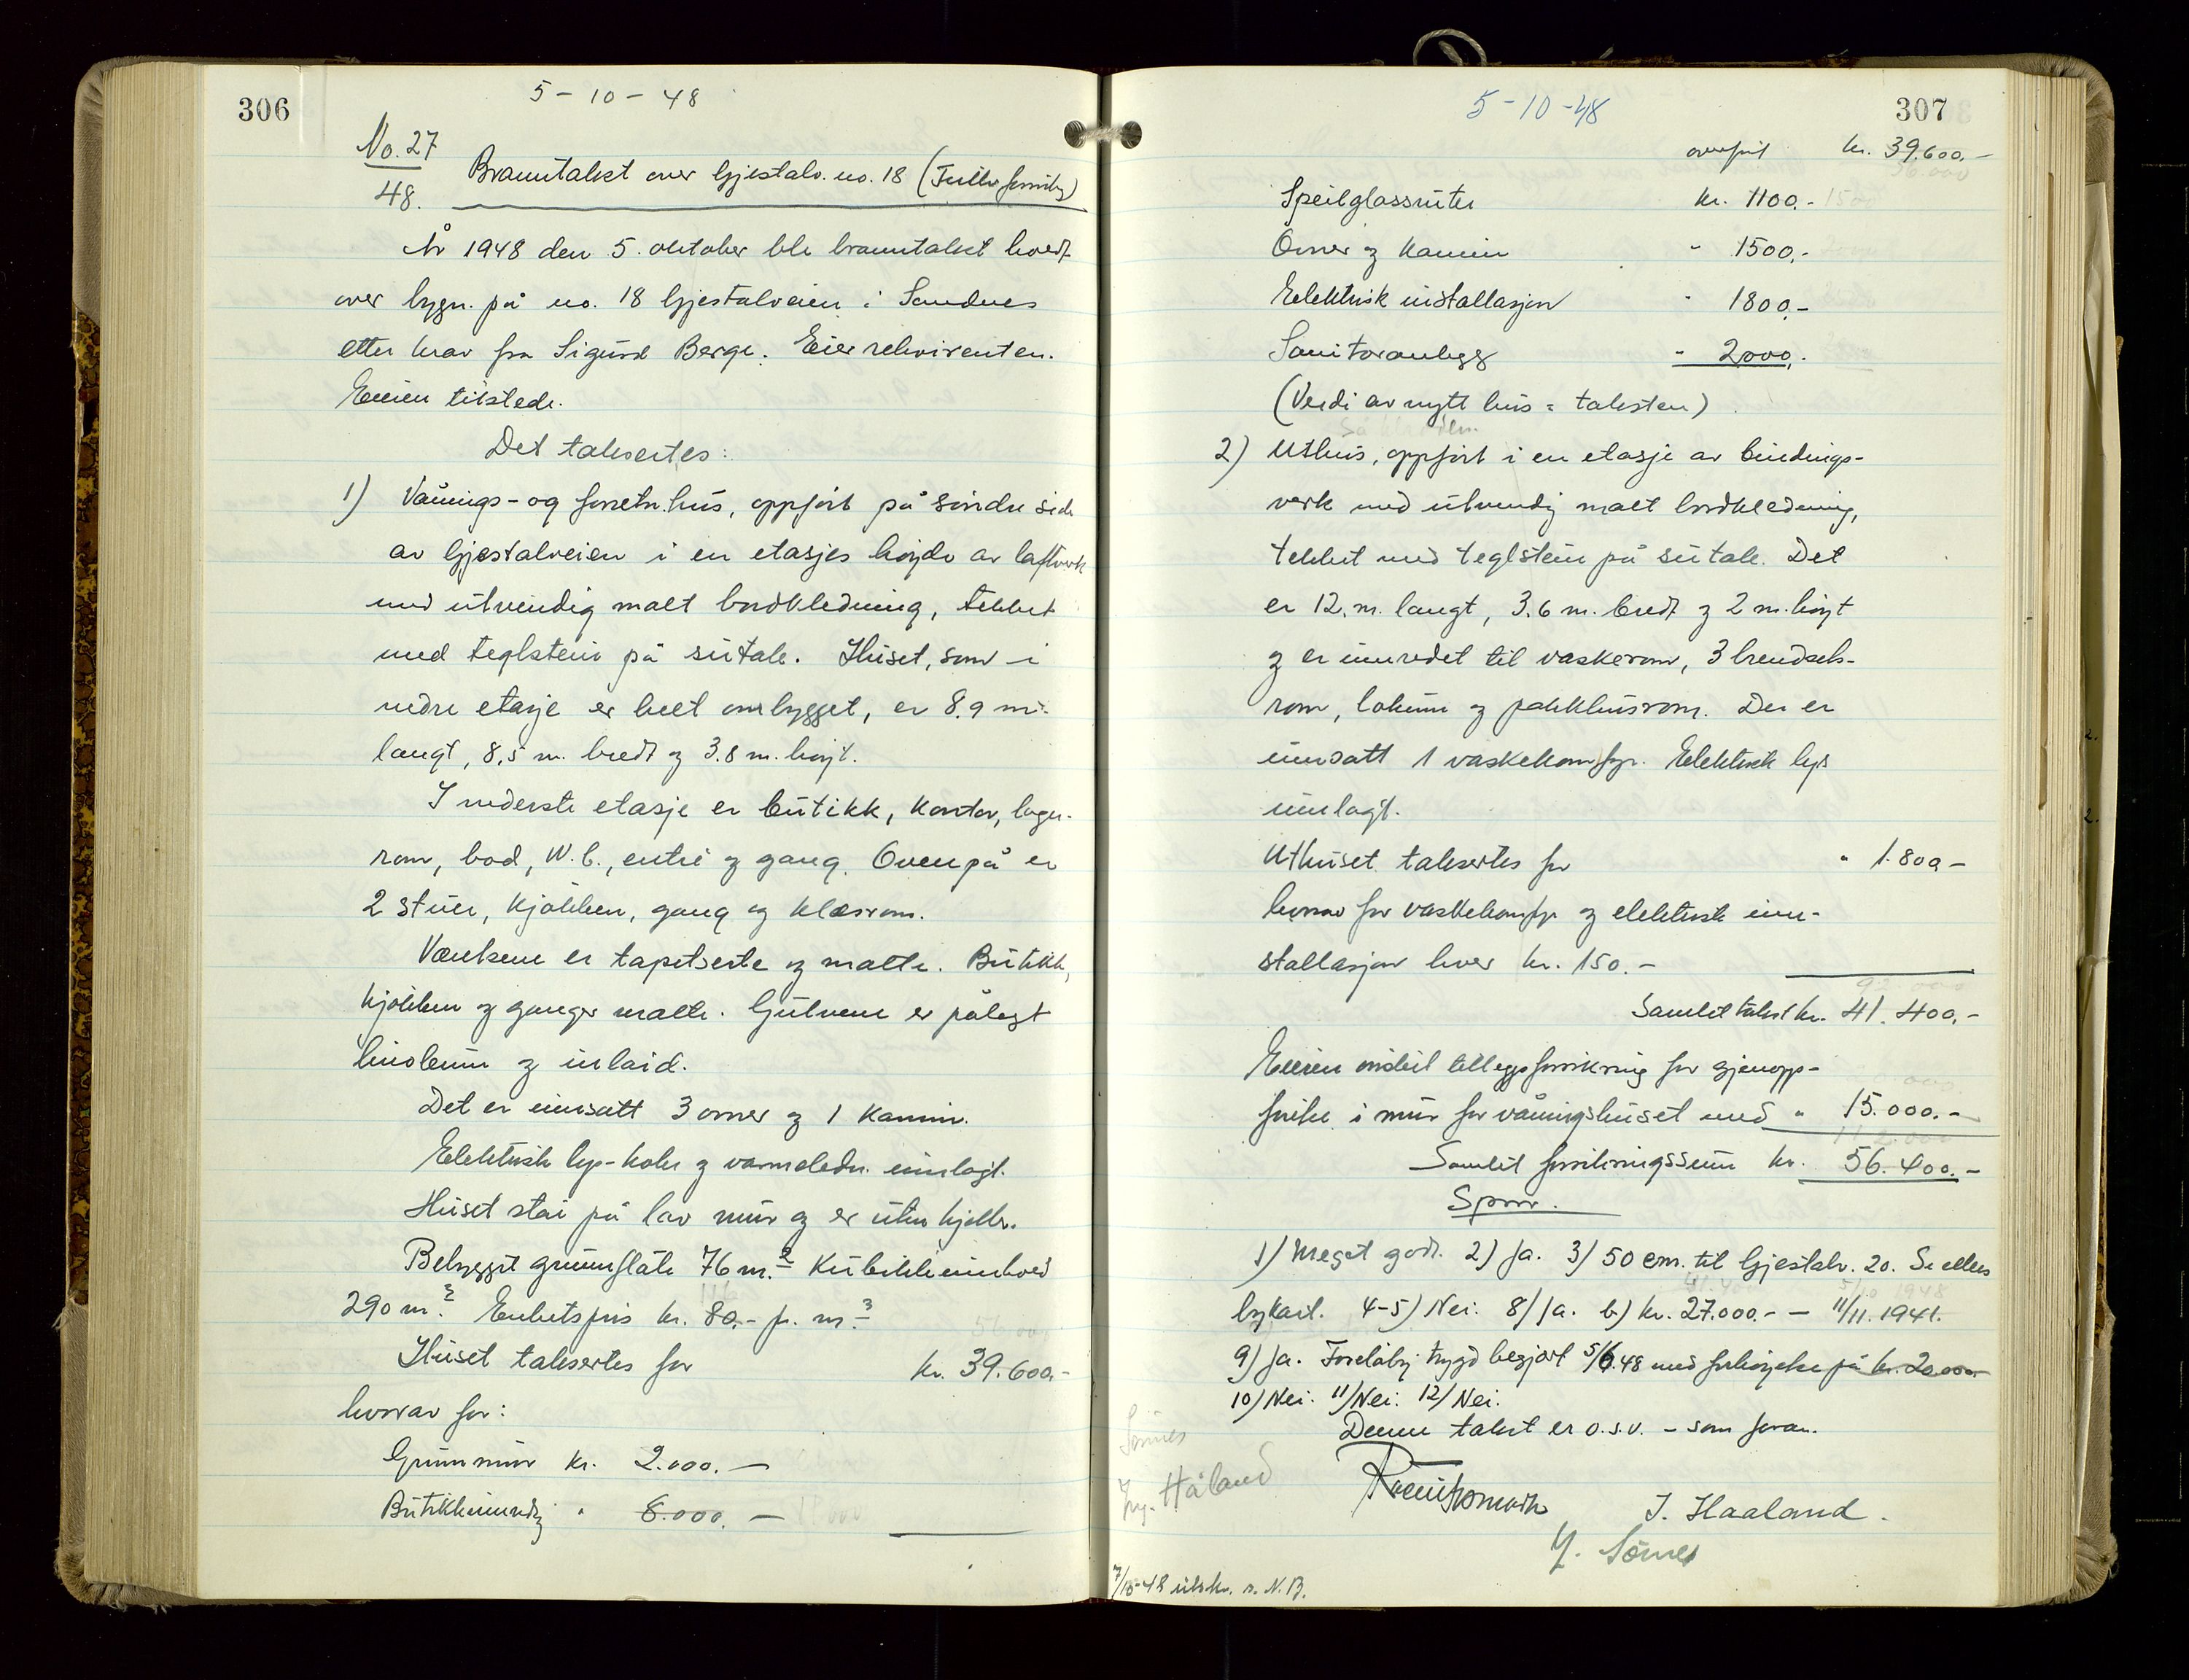 306
5-10-48
No. 27
48.
Branntakst over Gjestalv. no. 18 (Fullv forsikr.)
År 1948 den 5. oktober ble branntakst hvedt
over bygn. på no. 18 Gjestalveien i Sandnes
etter krav fra Sigurd Berge. Eier rekvirenten.
Eieren tilstede.
Det takseres:
1) Vånings- og forretn.hus, oppført på søndre side
av Gjestalveien i en etasjes høyde av laftverk
med utvendig malt bordkledning, tekket
med teglstein på sutak. Huset, som i
nedre etasje er helt ombygget, er 8.9 m.
langt, 8,5 m. bredt og 3.8 m. høyt.
I nederste etasje er butikk, kontor, lager-
rom, bod, W.C., entré og gang. Ovenpå er
2 stuer, kjøkken, gang og klesrom.
Værelsene er tapetserte og malte. Butikk,
kjøkken og ganger malte. Gulvene er pålagt
linoleum og inlaid.
Det er innsatt 3 ovner og 1 kamin.
Elektrisk lys- koke og varmeledn. innlagt.
Huset står på lav mur og er uten kjeller.
Bebygget grunnflate 76 m.2 Kubikkinnhold
290 m.3 Enhetspris kr. 80.- pr. m3
Huset takseres for kr. 39.600.-
hvorav for:
Grunnmur kr. 2.000.-
Butikkinnredn. " 8.000.-
307
5-10-48
overført kr. 39.600.-
Speilglassruter kr. 1100.-
Ovner og kamin " 1500.-
Elektrisk installasjon " 1800.-
Sanitæranlegg " 2000.
(Verdi av nytt hus = taksten)
2) Uthus, oppført i en etasje av bindings-
verk med utvendig malt bordkledning,
tekket med teglstein på sutak. Det
er 12. m. langt, 3.6 m. bredt og 2 m. høyt
og er innredet til vaskerom, 3 brendsels-
rom, lokum og pakkhusrom. Der er
innsatt 1 vaskekomfyr. Elektrisk lys
innlagt.
Uthuset takseres for " 1.800.-
hvorav for vaskekomfyr og elektrisk inn-
stallasjon hver kr. 150.-
Samlet takst kr. 41.400.-
Eieren ønsket tilleggsforsikring for gjenopp-
førelse i mur for våningshuset med " 15.000.-
Samlet forsikringssum kr. 56.400.-
Spør.
1) Meget godt. 2) Ja. 3) 50 cm. til Gjestalv. 20. Se ellers
bykart. 4-5) Nei. 8) Ja. b) kr. 27.000.- - 11/11.1941.
9) Ja. Foreløbig trygd begjært 5/6.48 med forhøyelse på kr. 20.000.-
10) Nei. 11) Nei. 12) Nei.
Denne takst er o.s.v. - som foran.
Sømes
Ing. Håland
J. Haaland.
Y. Sømes
7/10-48 utskr. s. N.B.